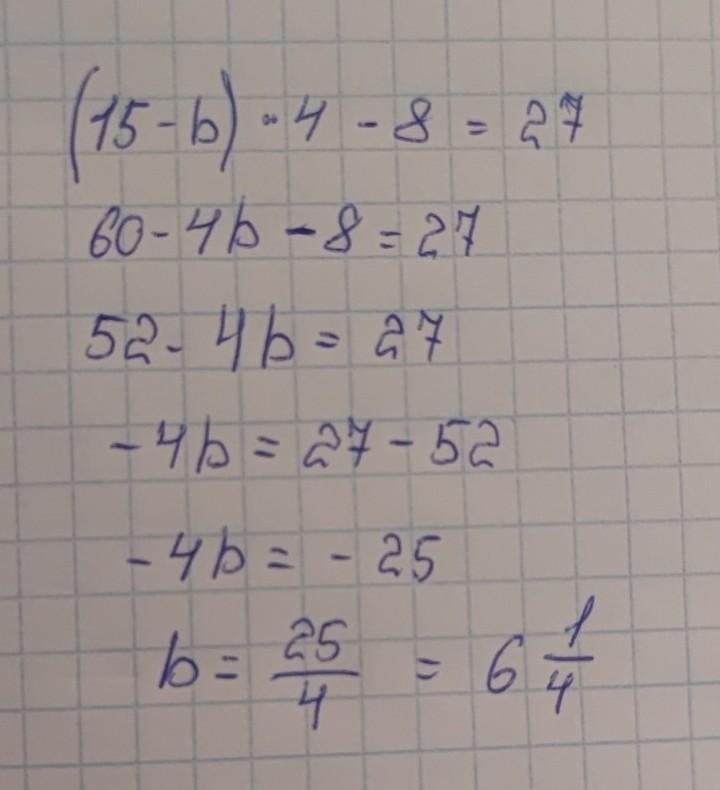 (15 - b) · 4 - 8 = 27
60 - 4b - 8 = 27
52 - 4b = 27
- 4b = 27 - 52
- 4b = - 25
b = 25/4 = 6 1/4